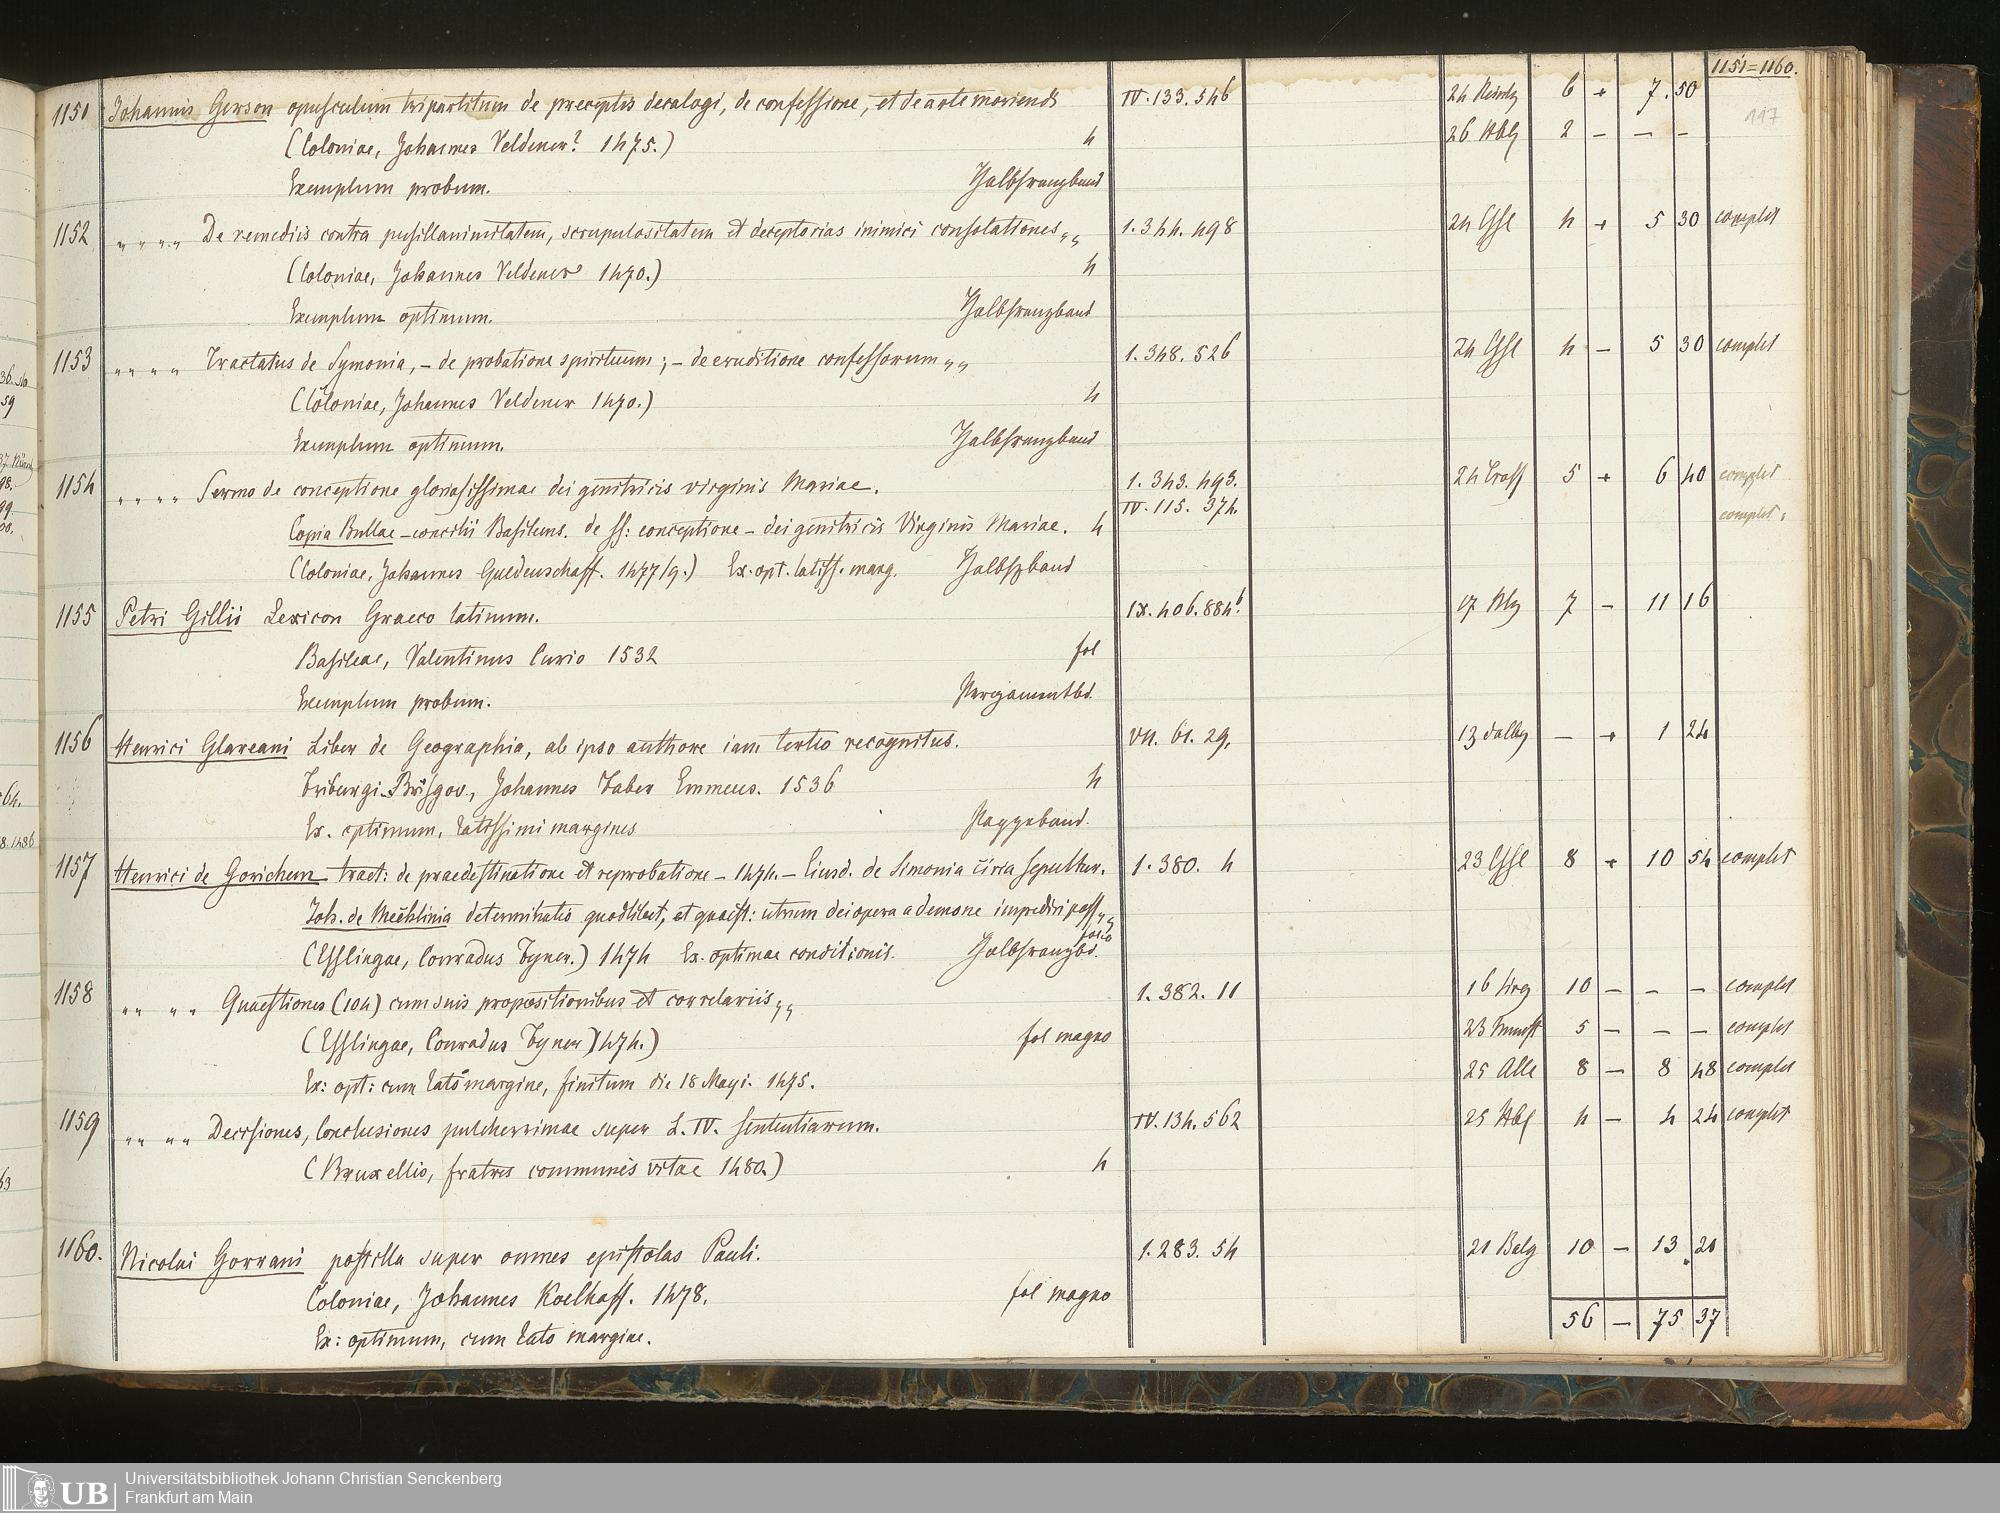 1151=1160.
117
1151 Johannis Gerson opusculum tripartitum de preceptis decalogi, de confessione, et de arte moriendi IV. 133. 546 6 + 7. 50
(Coloniae, Johannes Veldener? 1475.) 4 26 2 - - -
Exemplum probum. Halbfranzband
1152 " " " " De remediis contra pusillanimitatem, scrupulositatem et deceptorias inimici consolationes " " 1. 344. 498 4 + 5 30 complet
(Coloniae, Johannes Veldener 1470.) 4
Exemplum optimum. Halbfranzband
1153 " " " " Tractatus de Symonia, - de probatione spirituum; - de eruditione confessorum " " 1. 348. 526 4 - 5 30 complet
(Coloniae, Johannes Veldener 1470.) 4
Exemplum optimum. Halbfranzband
1154 " " " " Sermo de conceptione gloriosissimae dei genitricis virginis Mariae. 1. 343. 493. 5 + 6 40 complet
IV. 115. 374. complet.
Copia Bullae - concilii Basileens. de ss: conceptione - dei genitricis Virginis Mariae. 4
(Coloniae, Johannes Guldenschaff. 1477/9.) Ex. opt. latiss. marg. Halbfzband
1155 Petri Gillii Lexicon Graeco latinum. IX. 406. 884b. 7 - 11 16
Basileae, Valentinus Curio 1532 fol
Exemplum probum. Pergamentbd.
1156 Henrici Glareani Liber de Geographia, ab ipso authore iam tertio recognitus. VII. 61. 29. 13 - + 1 24
Friburgi Brisgov., Johannes Faber Emmeus. 1536 4
Ex. optimum, latissimi margines Pappeband.
1157 Henrici de Gorichem tract: de praedestinatione et reprobatione - 1474. - Eiusd. de Simonia circa sepultur. 1. 380. 4 8 + 10 54 complet
Joh. de Mechlinia determinatio quodlibet, et quaest: utrum dei opera a demone impediri poss " "
folio
(Esslingae, Conradus Fyner.) 1474 Ex. optimae conditionis. Halbfranzbd.
1158 " " " " Quaestiones (104) cum suis propositionibus et correlariis " " 1. 382. 11 16 10 - - - complet
(Esslingae, Conradus Fyner 1474.) fol magno 5 - - - complet
Ex: opt: cum lato margine, finitum die 18 Mayi. 1475. 25 Alle 8 - 8 48 complet
1159 " " " " Decisiones, Conclusiones pulcherrimae super L. IV. sententiarum. IV. 134. 562 25 4 - 4 24 complet
(Bruxellis, fratres communis vitae 1480.) 4
1160. Nicolai Gorrani postilla super omnes epistolas Pauli. 1. 283. 54 21 Belg 10 - 13. 20
Coloniae, Johannes Koelhoff. 1478. fol magno
56 - 75 37
Ex: optimum, cum lato margine.
UB
Universitätsbibliothek Johann Christian Senckenberg
Frankfurt am Main